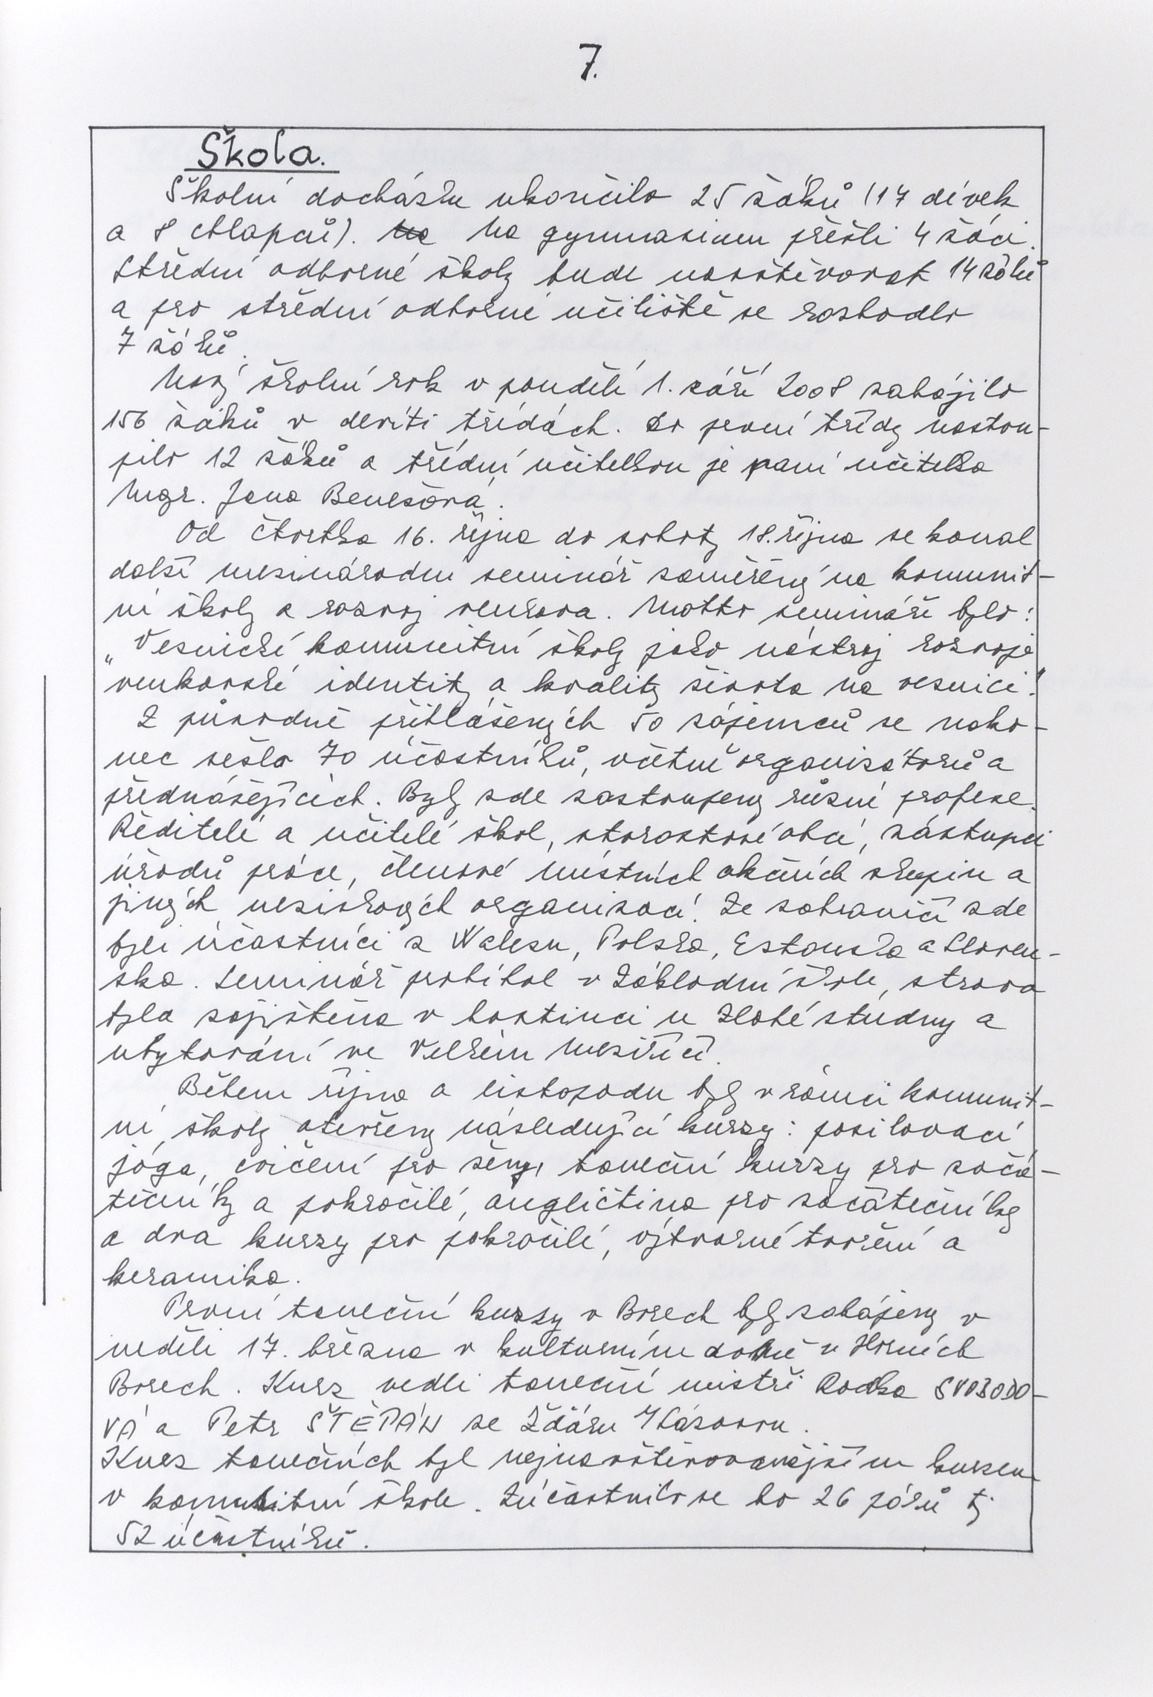 7.
Škola.
Školní docházku ukončilo 25 žáků (17 dívek
a 8 chlapců). Na Na gymnasium přešli 4 žáci.
Střední odborné školy bude navštěvovat 14 žáků
a pro střední odborné učiliště se rozhodlo
7 žáků.
Nový školní rok v pondělí 1. září 2008 zahájilo
156 žáků v devíti třídách. Do první třídy nastou-
pilo 12 žáků a třídní učitelkou je paní učitelka
Mgr. Jana Benešová.
Od čtvrtka 16. října do soboty 18. října se konal
další mezinárodní seminář zaměřený na komunit-
ní školy a rozvoj venkova. Motto semináře bylo:
„Vesnické komunitní školy jako nástroj rozvoje
venkovské identity a kvality života na vesnici."
Z původně přihlášených 50 zájemců se nako-
nec sešlo 70 účastníků, včetně organizátorů a
přednášejících. Byly zde zastoupeny různé profese.
Ředitelé a učitelé škol, starostové obcí, zástupci
úřadů práce, členové místních akčních skupin a
jiných neziskových organizací. Ze zahraničí zde
byli účastníci z Walesu, Polska, Estonska a Sloven-
ska. Seminář probíhal v Základní škole, strava
byla zajištěna v hostinci u Zlaté studny a
ubytování ve Velkém Meziříčí.
Během října a listopadu byly v rámci komunit-
ní školy otevřeny následující kurzy: posilovací
jóga, cvičení pro ženy, taneční kurzy pro začá-
tečníky a pokročilé, angličtina pro začátečníky
a dva kurzy pro pokročilé, výtvarné tvoření a
keramika.
První taneční kurzy v Borech byly zahájeny v
neděli 17. března v kulturním domě v Horních
Borech. Kurz vedli taneční mistři Radka SVOBODO-
VÁ a Petr ŠTĚPÁN ze Žďáru n/Sázavou.
Kurz tanečních byl nejnavštěvovanějším kurzem
v komunitní škole. Zúčastnilo se ho 26 párů tj
52 účastníků.